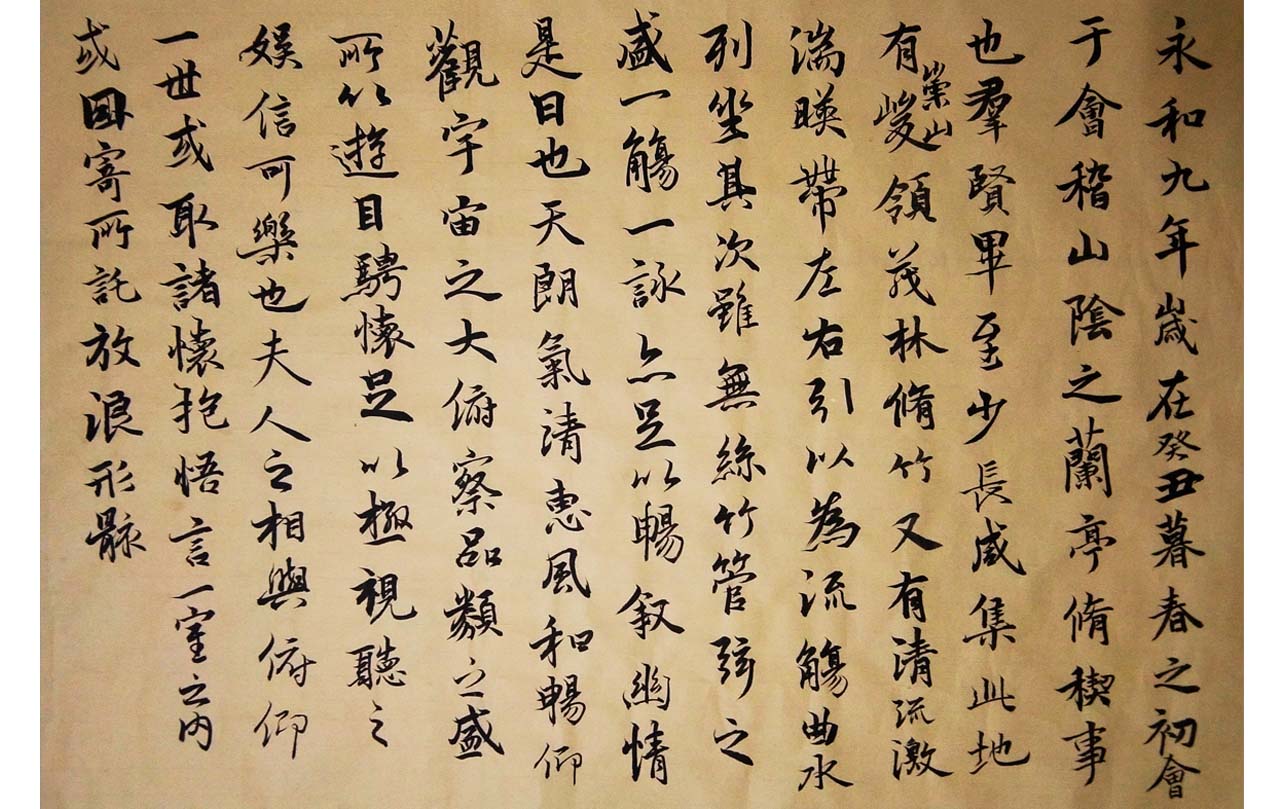 永和九年歲在癸丑暮春之初會
于會稽山陰之蘭亭脩稧事
也羣賢畢至少長咸集此地
有崇山峻領茂林脩竹又有清流激
湍暎帶左右引以為流觴曲水
列坐其次雖無絲竹管弦之
盛一觴一詠亦足以暢叙幽情
是日也天朗氣清惠風和暢仰
觀宇宙之大俯察品類之盛
所以遊目騁懷足以極視聽之
娛信可樂也夫人之相與俯仰
一世或取諸懷抱悟言一室之內
或因寄所託放浪形骸